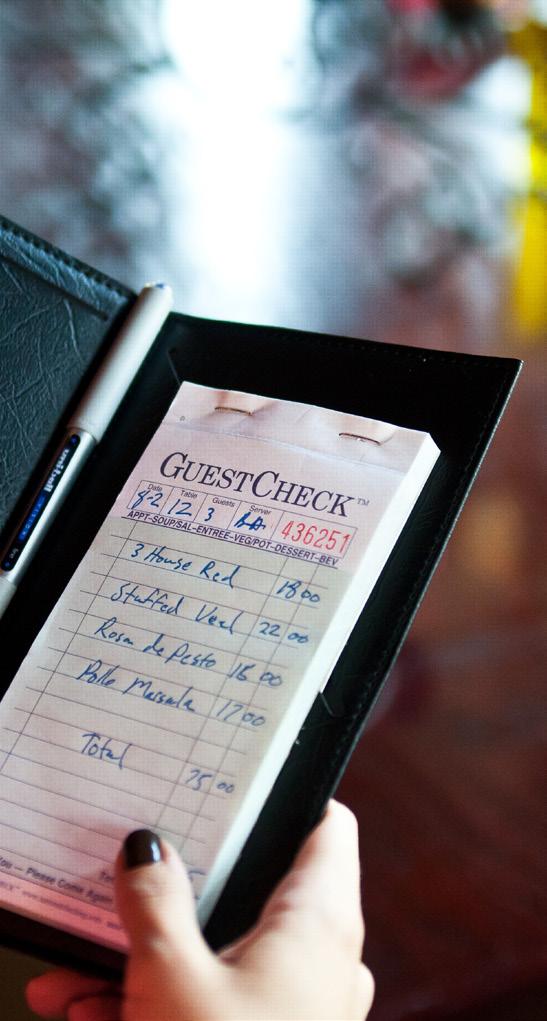 GUESTCHECK™
Date Table Guests Server
8-2 12 3 436251
APPT-SOUP/SAL-ENTREE-VEG/POT-DESSERT-BEV
3 House Red 18 00
Stuffed Veal 22 00
Rosa de Pesto 18 00
Pollo Massala 17 00
Total 75 00
You — Please Come Again
uniball